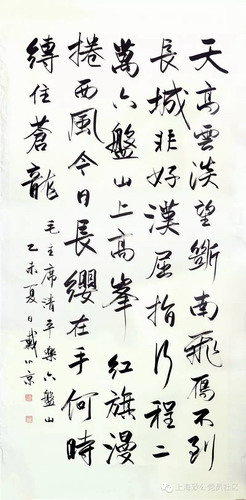 天高雲淡望斷南飛雁不到
長城非好漢屈指行程二
萬六盤山上高峯紅旗漫
捲西風今日長纓在手何時
縛住蒼龍
毛主席清平樂六盤山
乙未夏日戴小京